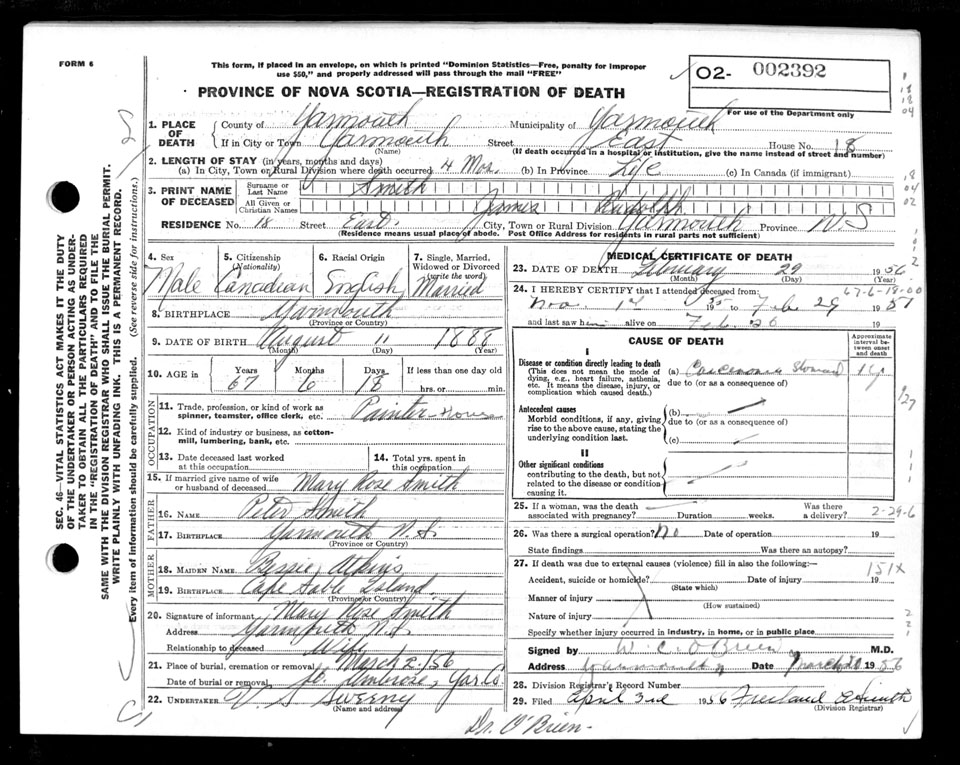 FORM 6
This form, if placed in an envelope, on which is printed "Dominion Statistics—Free, penalty for improper
use $50," and properly addressed will pass through the mail "FREE"
O2- 002392
For use of the Department only
PROVINCE OF NOVA SCOTIA—REGISTRATION OF DEATH
1. PLACE OF DEATH County of Yarmouth Municipality of Yarmouth
If in City or Town Yarmouth Street East House No. 18
(Name) (If death occurred in a hospital or institution, give the name instead of street and number)
2. LENGTH OF STAY (in years, months and days)
(a) In City, Town or Rural Division where death occurred 4 Mos. (b) In Province Life (c) In Canada (if immigrant)
3. PRINT NAME OF DECEASED Surname or Last Name Smith
All Given or Christian Names James Rudolph
RESIDENCE No. 18 Street East City, Town or Rural Division Yarmouth Province N.S
(Residence means usual place of abode. Post Office Address for residents in rural parts not sufficient)
4. Sex 5. Citizenship (Nationality) 6. Racial Origin 7. Single, Married, Widowed or Divorced (write the word)
Male Canadian English Married
8. BIRTHPLACE Yarmouth
(Province or Country)
9. DATE OF BIRTH August 11 1888
(Month) (Day) (Year)
10. AGE in Years Months Days If less than one day old
67 6 18 hrs. or min.
OCCUPATION
11. Trade, profession or kind of work as
spinner, teamster, office clerk, etc. Painter House
12. Kind of industry or business, as cotton-
mill, lumbering, bank, etc.
13. Date deceased last worked at this occupation 14. Total yrs. spent in this occupation
15. If married give name of wife
or husband of deceased Mary Rose Smith
FATHER
16. NAME Peter Smith
17. BIRTHPLACE Yarmouth N.S.
(Province or Country)
MOTHER
18. MAIDEN NAME Bessie Atkins
19. BIRTHPLACE Cape Sable Island
(Province or Country)
20. Signature of informant Mary Rose Smith
Address Yarmouth N.S.
Relationship to deceased Wife
21. Place of burial, cremation or removal March 2-/56
Date of burial or removal St. Ambrose, Yar. Co
22. UNDERTAKER V. S Sweeny
(Name and address)
MEDICAL CERTIFICATE OF DEATH
23. DATE OF DEATH February 29 1956
(Month) (Day) (Year)
24. I HEREBY CERTIFY that I attended deceased from: 67-6-18-00
Nov. 1955 Feb 29 19
and last saw him alive on Feb. 19
CAUSE OF DEATH
Approximate interval between onset and death
I
Disease or condition directly leading to death
(This does not mean the mode of
dying, e.g., heart failure, asthenia,
etc. It means the disease, injury, or
complication which caused death.)
(a) Carcinoma Stomach 1 yr
due to (or as a consequence of)
Antecedent causes
Morbid conditions, if any, giving
rise to the above cause, stating the
underlying condition last.
(b)
due to (or as a consequence of)
(c)
II
Other significant conditions
contributing to the death, but not
related to the disease or condition
causing it.
25. If a woman, was the death Was there
associated with pregnancy? Duration weeks. a delivery? 2-29-6
26. Was there a surgical operation? No Date of operation 19
State findings Was there an autopsy?
27. If death was due to external causes (violence) fill in also the following:— 151X
Accident, suicide or homicide? Date of injury 19
(State which)
Manner of injury
(How sustained)
Nature of injury
Specify whether injury occurred in industry, in home, or in public place
Signed by W. C. O'Brien M.D.
Address Yarmouth Date March 1956
28. Division Registrar's Record Number
29. Filed April 3rd 1956 Freeland Smith
(Division Registrar)
Dr. O'Brien-
SEC. 46—VITAL STATISTICS ACT MAKES IT THE DUTY
OF THE UNDERTAKER OR PERSON ACTING AS UNDER-
TAKER TO OBTAIN ALL THE PARTICULARS REQUIRED
IN THE "REGISTRATION OF DEATH" AND TO FILE THE
SAME WITH THE DIVISION REGISTRAR WHO SHALL ISSUE THE BURIAL PERMIT.
WRITE PLAINLY WITH UNFADING INK. THIS IS A PERMANENT RECORD.
Every item of information should be carefully supplied. (See reverse side for instructions.)